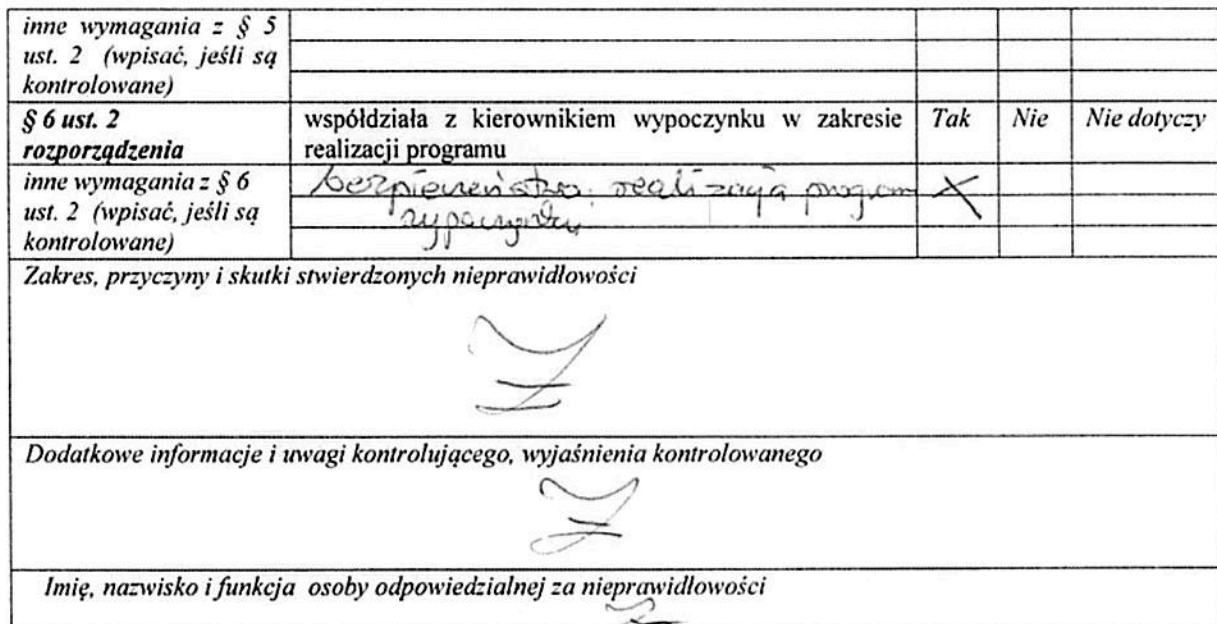 inne wymagania z § 5
ust. 2 (wpisać, jeśli są
kontrolowane)
§ 6 ust. 2
rozporządzenia
współdziała z kierownikiem wypoczynku w zakresie
realizacji programu
Tak Nie Nie dotyczy
inne wymagania z § 6
ust. 2 (wpisać, jeśli są
kontrolowane)
bezpieczeństwo realizacja program X
wypoczynku
Zakres, przyczyny i skutki stwierdzonych nieprawidłowości
Dodatkowe informacje i uwagi kontrolującego, wyjaśnienia kontrolowanego
Imię, nazwisko i funkcja osoby odpowiedzialnej za nieprawidłowości